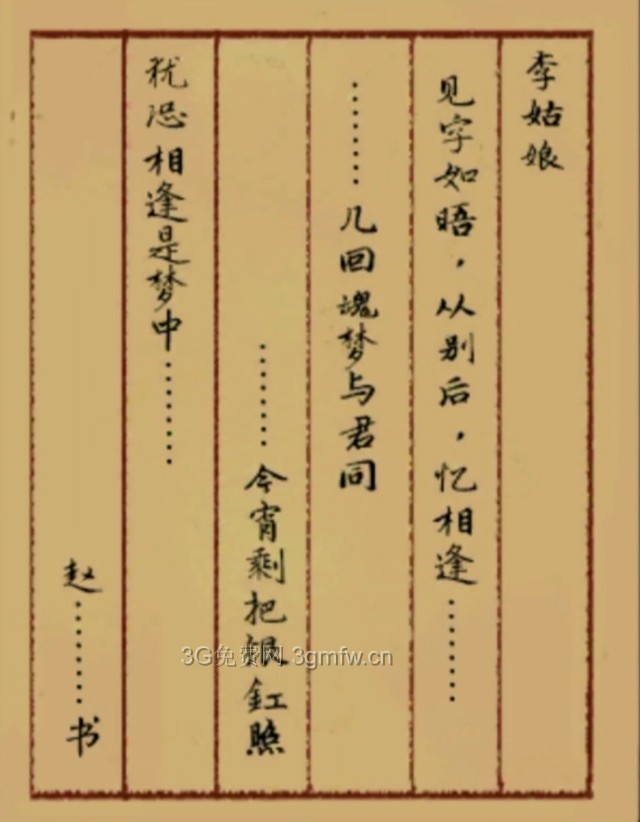 李姑娘
见字如晤，从别后，忆相逢………
………几回魂梦与君同
………今宵剩把银釭照
犹恐相逢是梦中………
赵………书
3G免费网 3gmfw.cn